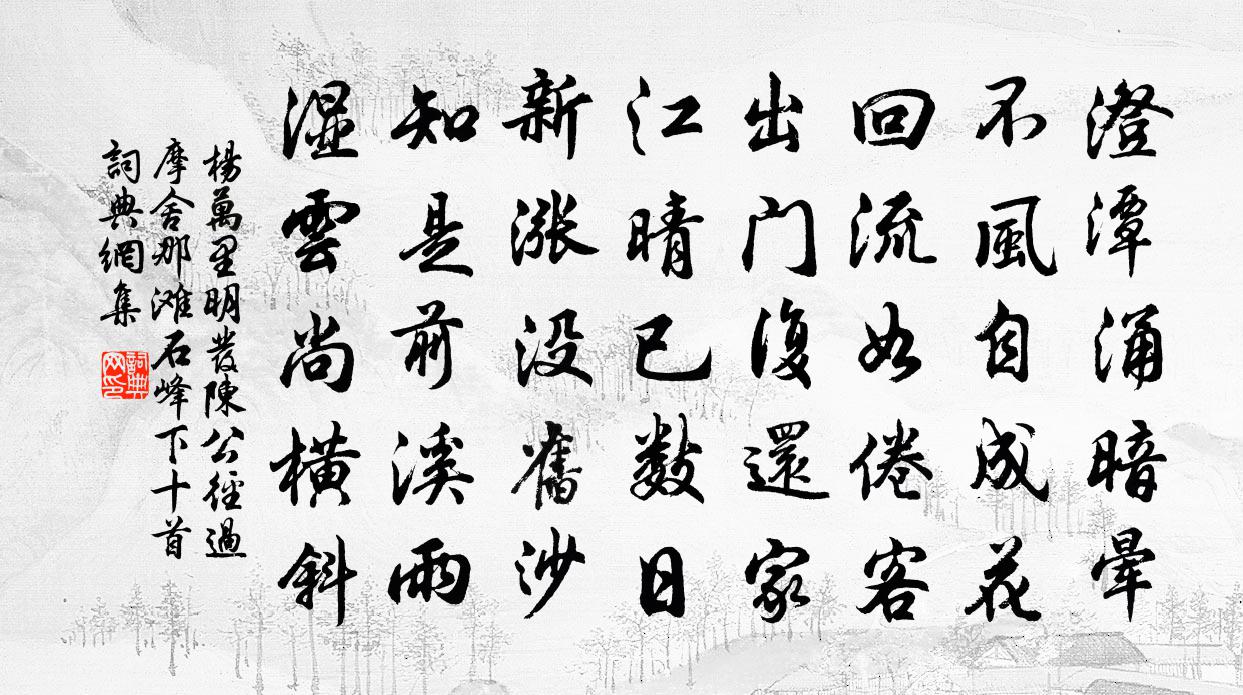 澄潭涌暗暈
不風自成花
回流如倦客
出门復還家
江晴已數日
新漲没舊沙
知是前溪雨
濕雲尚横斜
楊萬里明發陳公徑過
摩舍那滩石峰下十首
詞典網集
詞典
网印